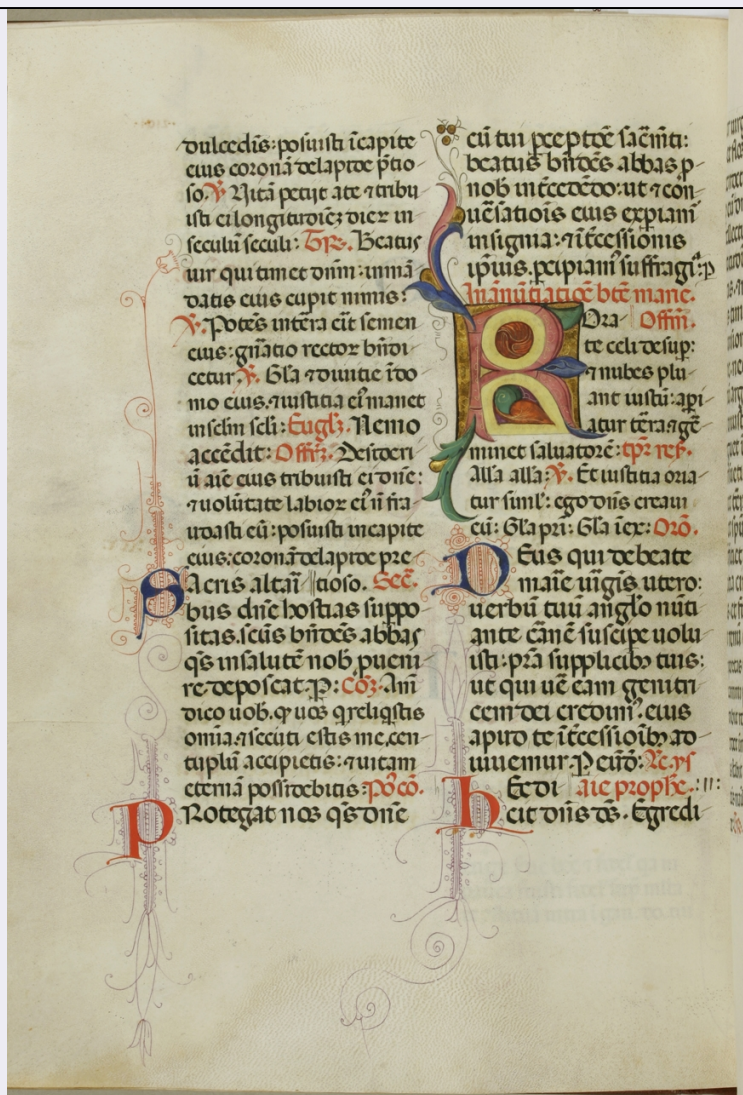 dulcedīs: posuisti ī capite
eius coronā de lapide p̄tio
so. ℣ Vitā petijt a te ⁊ tribu
isti ei longitudīeꝫ dieꝝ in
seculū seculi: Gr̄. Beatus
uir qui timet dn̄m: in mā
datis eius cupit nimis:
℣. Potēs in tēra eīt semen
eius: gn̄atio rectoꝝ bn̄di
cetur. ℣. Gl̄a ⁊ diuitie ī do
mo eius. ⁊ iustitia eiꝰ manet
in sel̄m sel̄i: Eugl̄ꝫ. Nemo
accēdit: Offm̄. Desideri
ū aīe eius tribuisti ei dn̄e:
⁊ uolūtate labioꝝ eiꝰ nō fra
udasti eū: posuisti in capite
eius: coronā de lapide pre
Sacris altaī tioso. Sec̄.
bus dn̄e hostias suppo
sitas. scūs bn̄dc̄s abbas
q̄s in salutē nob̄ pueni
re deposcat. P: Cōꝫ. Amē
dico uob̄. ꝙ uos q̄ reliq̄stis
om̄ia. ⁊ secuti estis me. cen
tuplū accipietis: ⁊ uitam
eternā possidebitis: Po᷒ cō.
Protegat nos q̄s dn̄e
cū tui ꝑceptōe sacm̄ti:
beatus bn̄dc̄s abbas ꝓ
nob̄ intc̄edēdo: ut ⁊ con
uēsatiōis eius expiamꝰ
insignia: ⁊ ītc̄essiōnis
ip̄ius. ꝑcipiamꝰ suffragia: ꝑ
In ānūtiatiōe bt̄e marie.
Rorate celi desuꝑ: Offm̄.
⁊ nubes plu
ant iustū: aꝑi
atur tēra ⁊ gē
minet saluatorē: tp̄r res̄.
All'a all'a: ℣. Et iustitia oria
tur simul: ego dn̄s creaui
eū: Gl̄a pr̄i: Gl̄a ī ex: Orō.
Deus qui de beate
marīe uīgīs utero:
uerbū tuū anglo nūti
ante cārnē suscipe uolu
isti: pr̄a supplicibꝰ tuis:
ut qui uē eam genitri
cem dei credimꝰ. eius
apud te ītc̄essiōibꝰ ad
iuuemur. P eūd̄: Lc̄. ys
Hec di aie prophe. : 11 :
cit dn̄s ds̄. Egredi